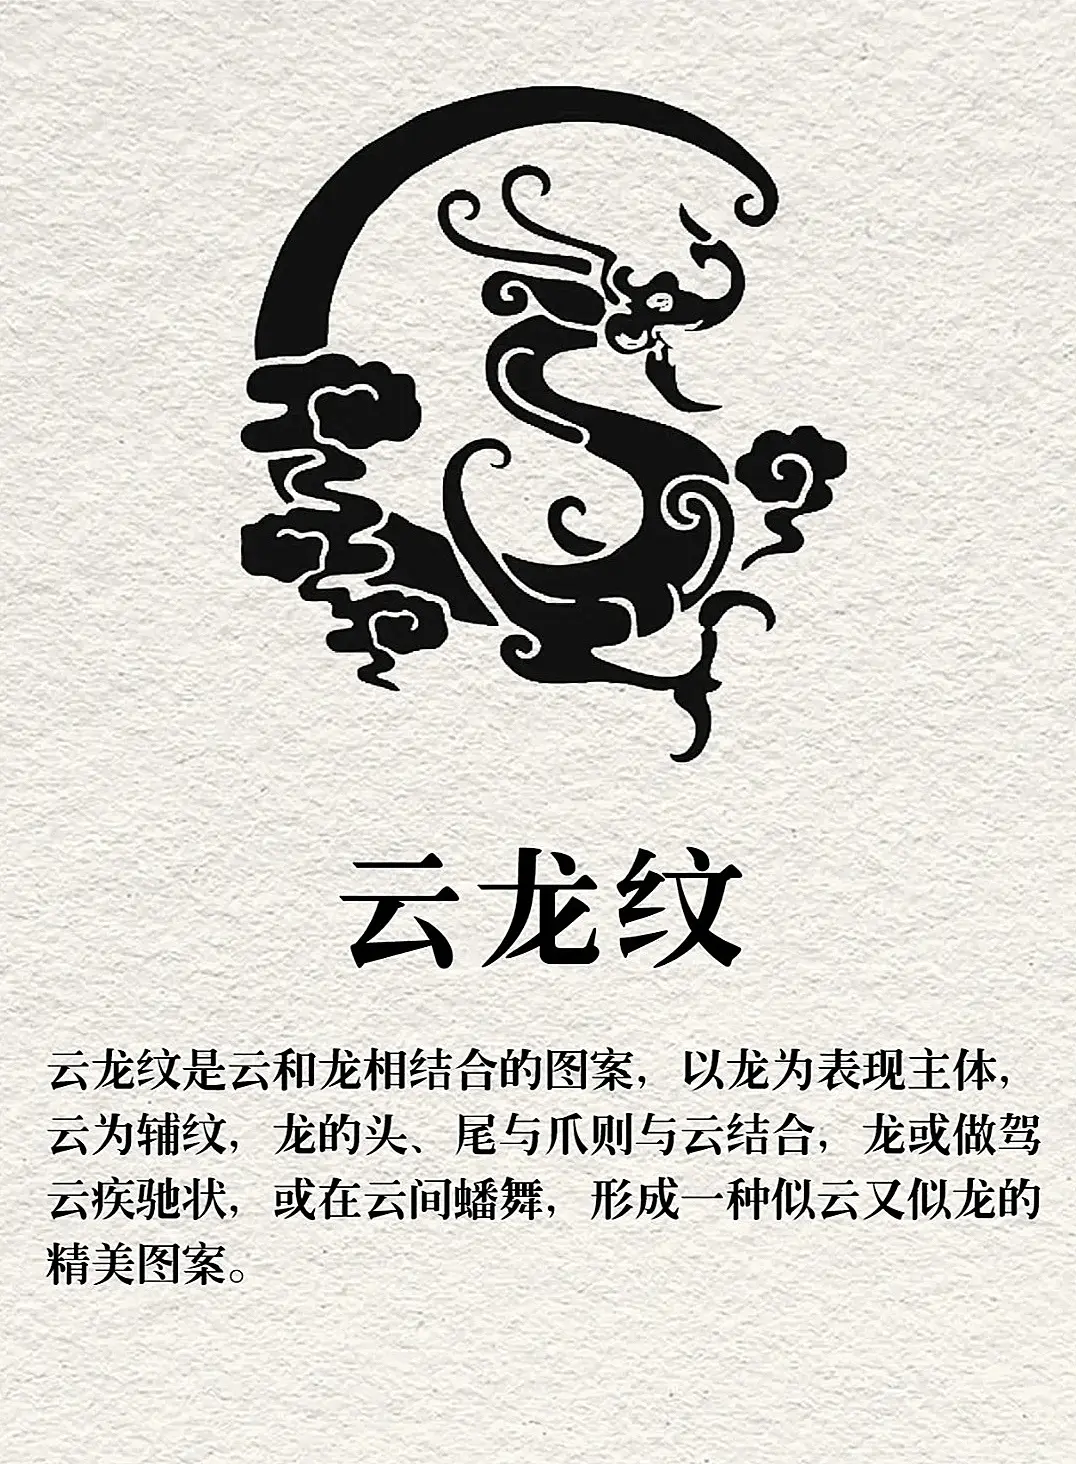 云龙纹
云龙纹是云和龙相结合的图案，以龙为表现主体，
云为辅纹，龙的头、尾与爪则与云结合，龙或做驾
云疾驰状，或在云间蟠舞，形成一种似云又似龙的
精美图案。